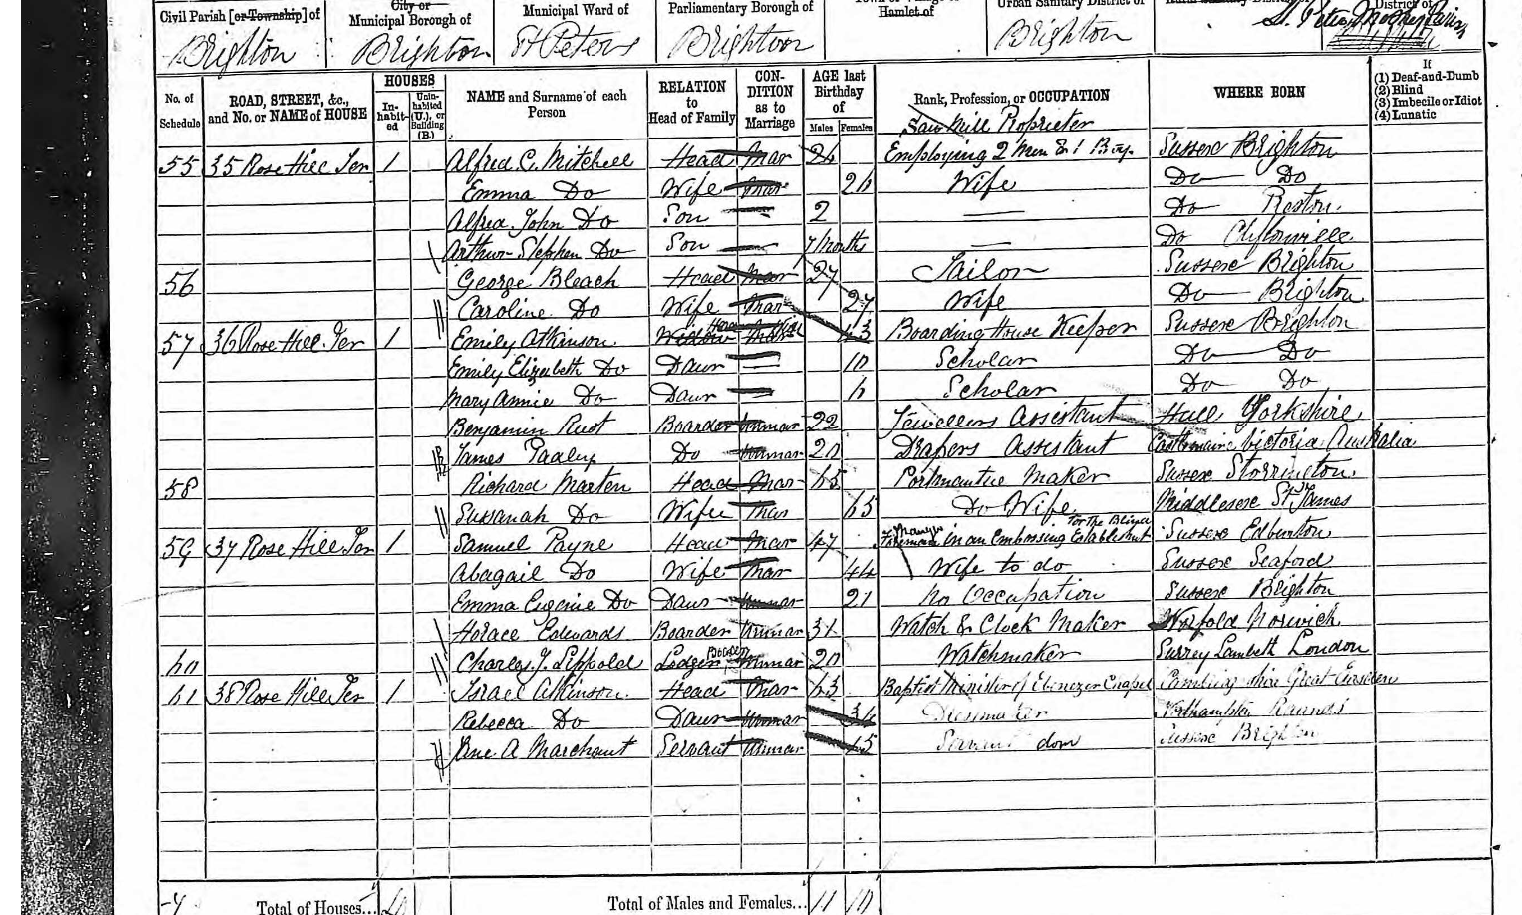 Civil Parish [or Township] of
City or Municipal Borough of
Municipal Ward of
Parliamentary Borough of
Hamlet of
Urban Sanitary District of
District of
Brighton Brighton St Peters Brighton Brighton St. Peter
No. of Schedule
ROAD, STREET, &c., and No. or NAME of HOUSE
HOUSES
In-habit-ed
Unin-habited (U.), or Building (B.)
NAME and Surname of each Person
RELATION to Head of Family
CON-DITION as to Marriage
AGE last Birthday of
Males Females
Rank, Profession, or OCCUPATION
WHERE BORN
If
(1) Deaf-and-Dumb
(2) Blind
(3) Imbecile or Idiot
(4) Lunatic
Saw Mill Proprietor
55 35 Rose Hill Ter 1 Alfred C. Mitchell Head Mar 26 Employing 2 Men & 1 Boy. Sussex Brighton
Emma Do Wife Mar 26 Wife Do Do
Alfred John Do Son 2 Do
Arthur Stephen Do Son 7 Months Do Cliftonville
56 George Bleach Head Mar 27 Tailor Sussex Brighton
Caroline Do Wife Mar 27 Wife Do Brighton
57 36 Rose Hill Ter 1 Emily Atkinson Widow Head Mar 43 Boarding House Keeper Sussex Brighton
Emily Elizabeth Do Daur 10 Scholar Do Do
Mary Annie Do Daur 6 Scholar Do Do
Benjamin Rust Boarder Unmar 22 Jewellers Assistant Hull Yorkshire
James Do Unmar 20 Drapers Assistant Victoria Australia
58 Richard Marten Head Mar 65 Portmantue Maker Sussex Storrington
Sussanah Do Wife Mar 65 Do Wife Middlesex St James
For The Blind
59 37 Rose Hill Ter 1 Samuel Payne Head Mar 47 in an Embossing Establishment Sussex Edburton
Abagail Do Wife Mar 44 Wife to do Sussex Seaford
Emma Eugenie Do Daur Unmar 21 No Occupation Sussex Brighton
Horace Edwards Boarder Unmar 31 Watch & Clock Maker Norfolk Norwich
60 Charles J. Lippold Lodger Boarder Unmar 20 Watchmaker Surrey Lambeth London
61 38 Rose Hill Ter 1 Israel Atkinson Head Mar 63 Baptist Minister of Ebenezer Chapel Great
Rebecca Do Daur Unmar 34 Dressmaker Northampton Raunds
Ane A Marchant Servant Unmar 45 Servant dom Sussex Brighton
Total of Houses... Total of Males and Females... 11 10